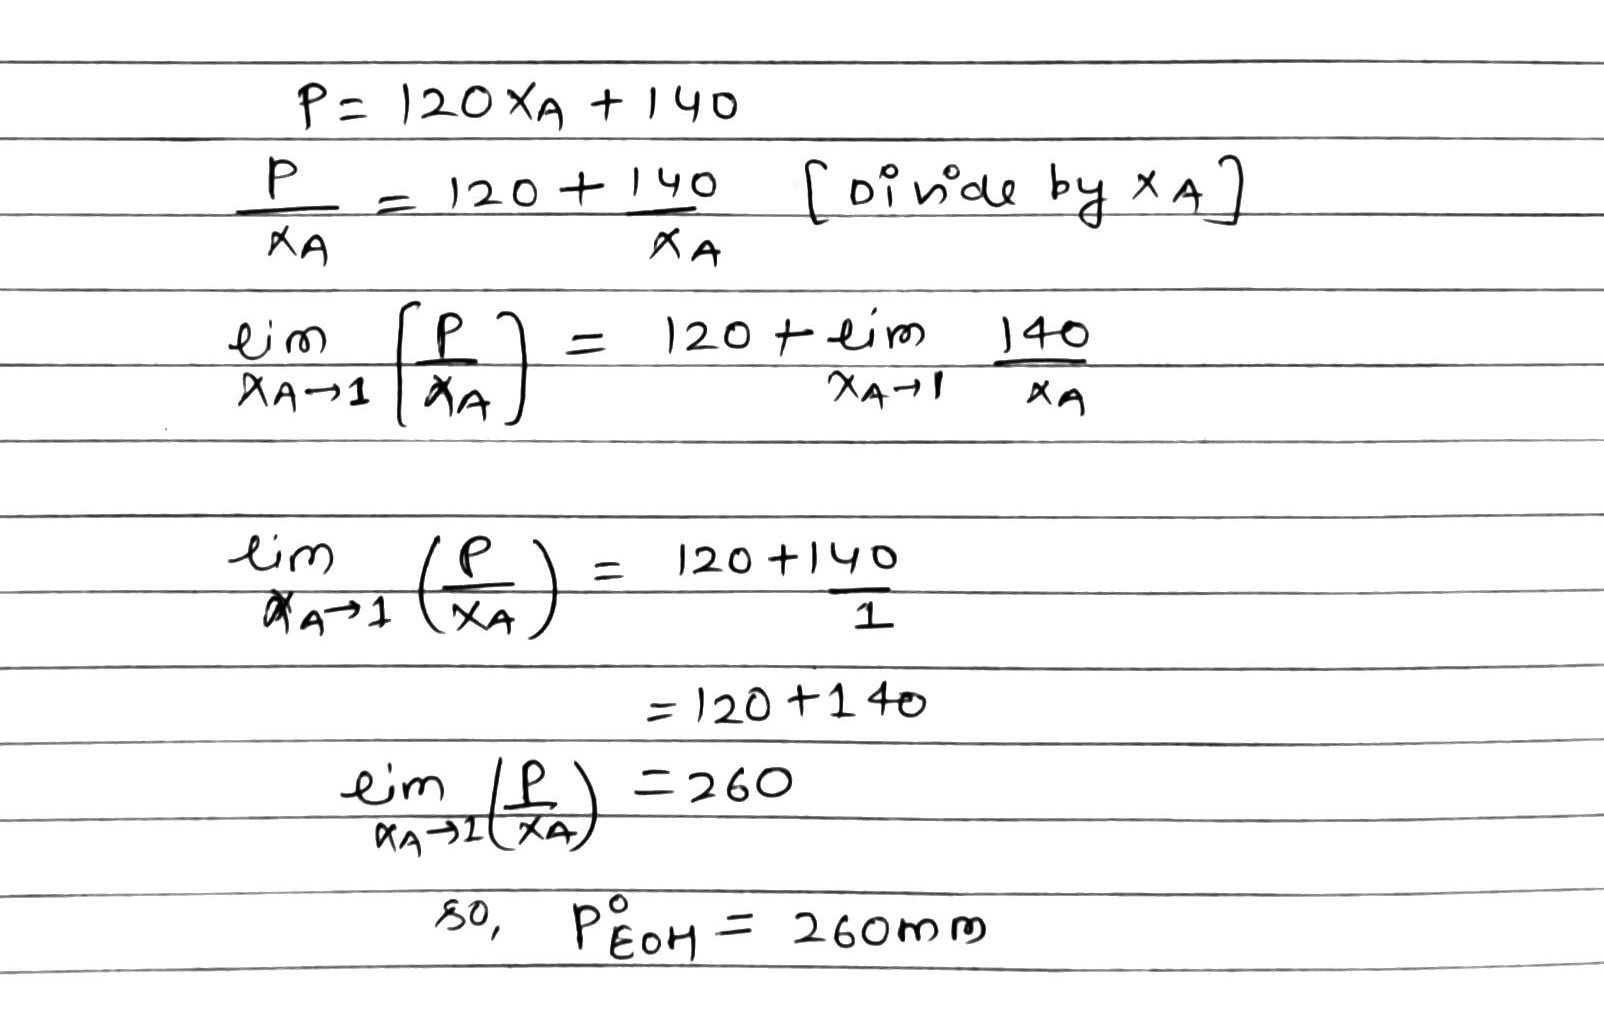 P = 120 xA + 140
P/xA = 120 + 140/xA [Divide by xA]
lim xA→1 [P/xA] = 120 + lim xA→1 140/xA
lim xA→1 (P/xA) = 120 + 140/1
= 120 + 140
lim xA→1 (P/xA) = 260
so, P°EOH = 260mm